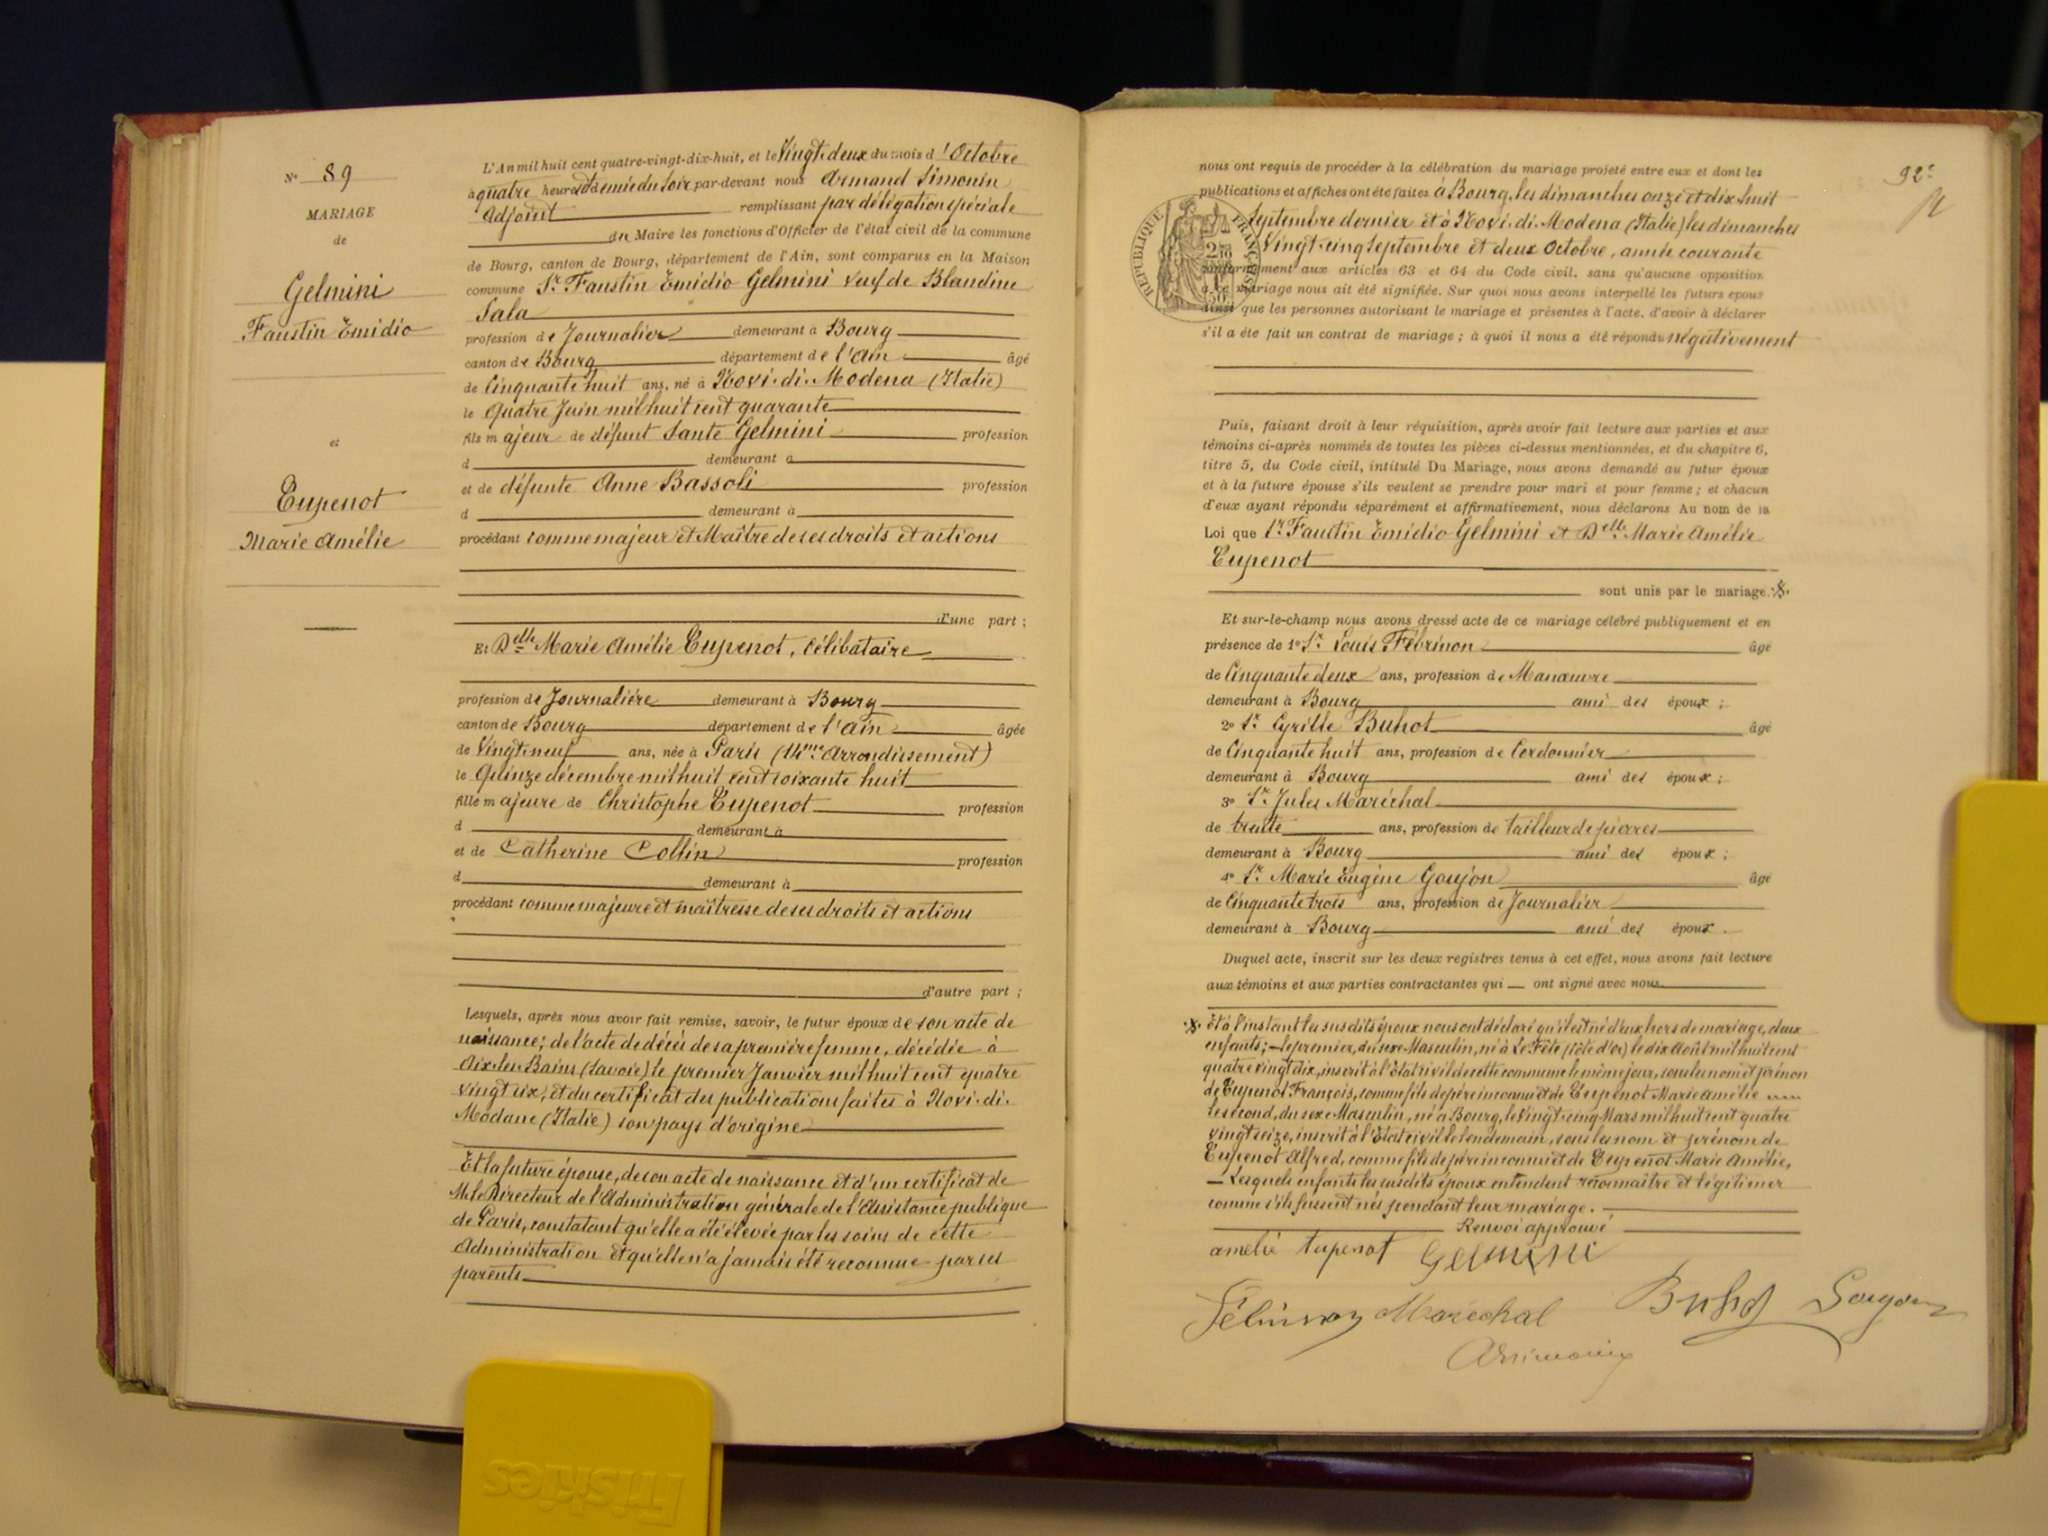 N° 89
MARIAGE
de
Gelmini
Faustin Emidio
et
Eupenot
Marie Amélie
L'An mil huit cent quatre-vingt-dix-huit, et le Vingt-deux du mois d'Octobre
à quatre heures et demie du soir par-devant nous Armand Simonin
Adjoint remplissant par délégation spéciale
du Maire les fonctions d'Officier de l'état civil de la commune
de Bourg, canton de Bourg, département de l'Ain, sont comparus en la Maison
commune Sr. Faustin Emidio Gelmini veuf de Blandine
Sala
profession de Journalier demeurant à Bourg
canton de Bourg département de l'Ain âgé
de Cinquante huit ans, né à Novi-di-Modena (Italie)
le Quatre Juin mil huit cent quarante
fils majeur de défunt Sante Gelmini profession
d demeurant à
et de défunte Anne Bassoli profession
d demeurant à
procédant comme majeur et Maître de ses droits et actions
d'une part ;
Et Delle Marie Amélie Eupenot, célibataire
profession de Journalière demeurant à Bourg
canton de Bourg département de l'Ain âgée
de Vingt-neuf ans, née à Paris (14me Arrondissement)
le Quinze décembre mil huit cent soixante huit
fille majeure de Christophe Eupenot profession
d demeurant à
et de Catherine Collin profession
d demeurant à
procédant comme majeure et maîtresse de ses droits et actions
d'autre part ;
Lesquels, après nous avoir fait remise, savoir, le futur époux de son acte de
naissance; de l'acte de décès de sa première femme, décédée à
Aix-les-Bains (Savoie) le premier Janvier mil huit cent quatre
vingt six; et du certificat des publications faites à Novi-di-
Modane (Italie) son pays d'origine
Et la future épouse, de son acte de naissance et d'un certificat de
M. le Directeur de l'Administration générale de l'Assistance publique
de Paris, constatant qu'elle a été élevée par les soins de cette
Administration et qu'elle n'a jamais été reconnue par ses
parents
92e
nous ont requis de procéder à la célébration du mariage projeté entre eux et dont les
publications et affiches ont été faites à Bourg, les dimanches onze et dix huit
Septembre dernier et à Novi-di-Modena (Italie) les dimanches
Vingt-cinq Septembre et deux Octobre, année courante
RÉPUBLIQUE FRANÇAISE
conformément aux articles 63 et 64 du Code civil, sans qu'aucune opposition
à ce mariage nous ait été signifiée. Sur quoi nous avons interpellé les futurs époux
ainsi que les personnes autorisant le mariage et présentes à l'acte, d'avoir à déclarer
s'il a été fait un contrat de mariage ; à quoi il nous a été répondu négativement
Puis, faisant droit à leur réquisition, après avoir fait lecture aux parties et aux
témoins ci-après nommés de toutes les pièces ci-dessus mentionnées, et du chapitre 6,
titre 5, du Code civil, intitulé Du Mariage, nous avons demandé au futur époux
et à la future épouse s'ils veulent se prendre pour mari et pour femme ; et chacun
d'eux ayant répondu séparément et affirmativement, nous déclarons Au nom de la
Loi que Sr. Faustin Emidio Gelmini et Delle Marie Amélie
Eupenot
sont unis par le mariage.
Et sur-le-champ nous avons dressé acte de ce mariage célébré publiquement et en
présence de 1° Sr. Louis Fébrinon âgé
de Cinquante deux ans, profession de Manœuvre
demeurant à Bourg ami des époux ;
2° Sr. Cyrille Buhot âgé
de Cinquante huit ans, profession de Cordonnier
demeurant à Bourg ami des époux ;
3° Sr. Jules Maréchal
de trente ans, profession de tailleur de pierres
demeurant à Bourg ami des époux ;
4° Sr. Marie Eugène Goujon âgé
de Cinquante trois ans, profession de Journalier
demeurant à Bourg ami des époux.
Duquel acte, inscrit sur les deux registres tenus à cet effet, nous avons fait lecture
aux témoins et aux parties contractantes qui ont signé avec nous
Et à l'instant les susdits époux nous ont déclaré qu'il est né d'eux hors de mariage, deux
enfants; le premier, du sexe Masculin, né à Le Fête (Côte d'Or) le dix Août mil huit cent
quatre vingt dix, inscrit à l'État civil de cette commune le même jour, sous le nom et prénom
de Eupenot François, comme fils de père inconnu et de Eupenot Marie Amélie
le second, du sexe Masculin, né à Bourg, le Vingt-cinq Mars mil huit cent quatre
vingt seize, inscrit à l'État civil le lendemain, sous les nom et prénom de
Eupenot Alfred, comme fils de père inconnu et de Eupenot Marie Amélie,
Lesquels enfants les susdits époux entendent reconnaître et légitimer
comme s'ils fussent nés pendant leur mariage.
Renvoi approuvé
amelie Eupenot Gelmini
Fébrinon Maréchal Buhot Goujon
A Simonin
Friskies